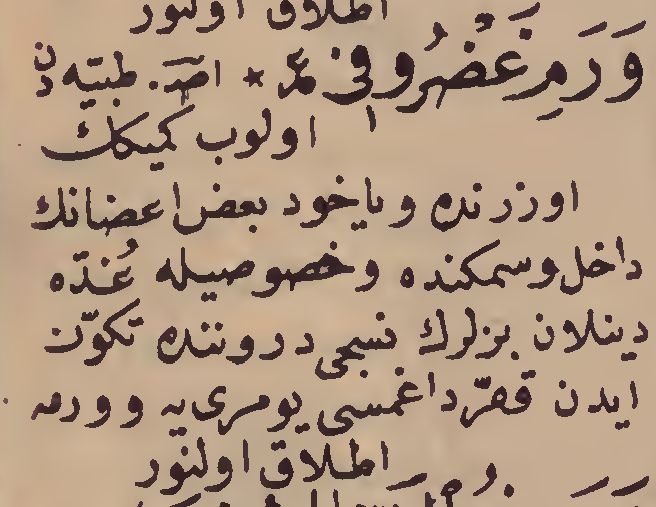 اطلاق اولنور
وَرَمِ غُضْرُوفِی عر * امر. طبیّه دن
اولوب کمیکلک
اوزرنده ویاخود بعض اعضانك
داخل وسمکنده وخصوصیله غُدّه
دینلان بزلرك نسجی دروننده تکوّن
ایدن قفرّداغمسی یومری یه وورمه
اطلاق اولنور